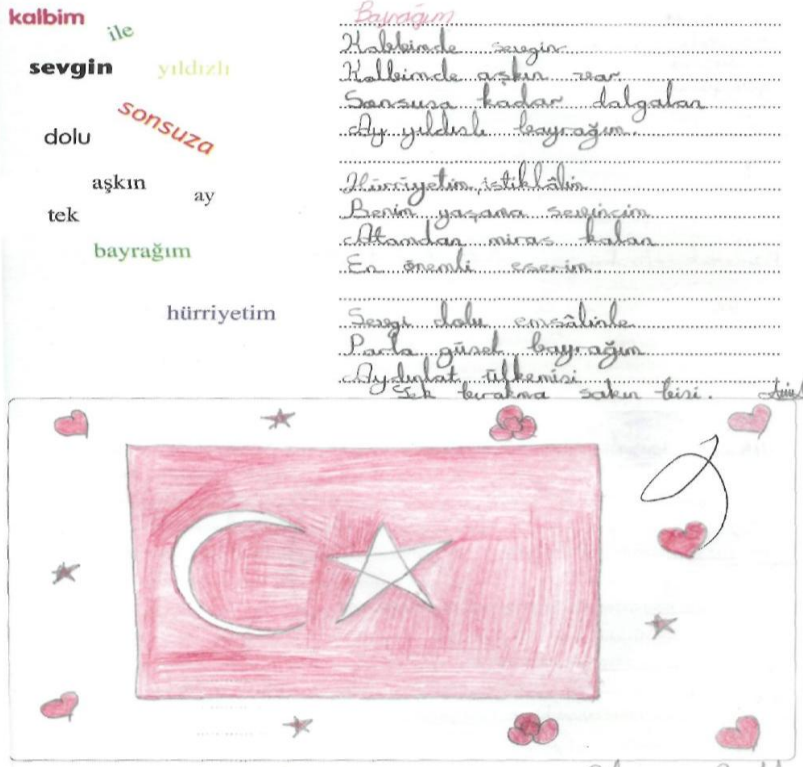 kalbim
ile
sevgin
yıldızlı
sonsuza
dolu
aşkın
ay
tek
bayrağım
hürriyetim
Bayrağım
Kalbimde sevgin
Kalbimde aşkın var
Sonsuza kadar dalgalan
Ay yıldızlı bayrağım.
Hürriyetim, istiklâlim
Benim yaşama sevincim
Atamdan miras kalan
En önemli eserim
Sevgi dolu emsâlinle
Parla güzel bayrağım
Aydınlat ülkemizi
Tek bırakma sakın bizi.